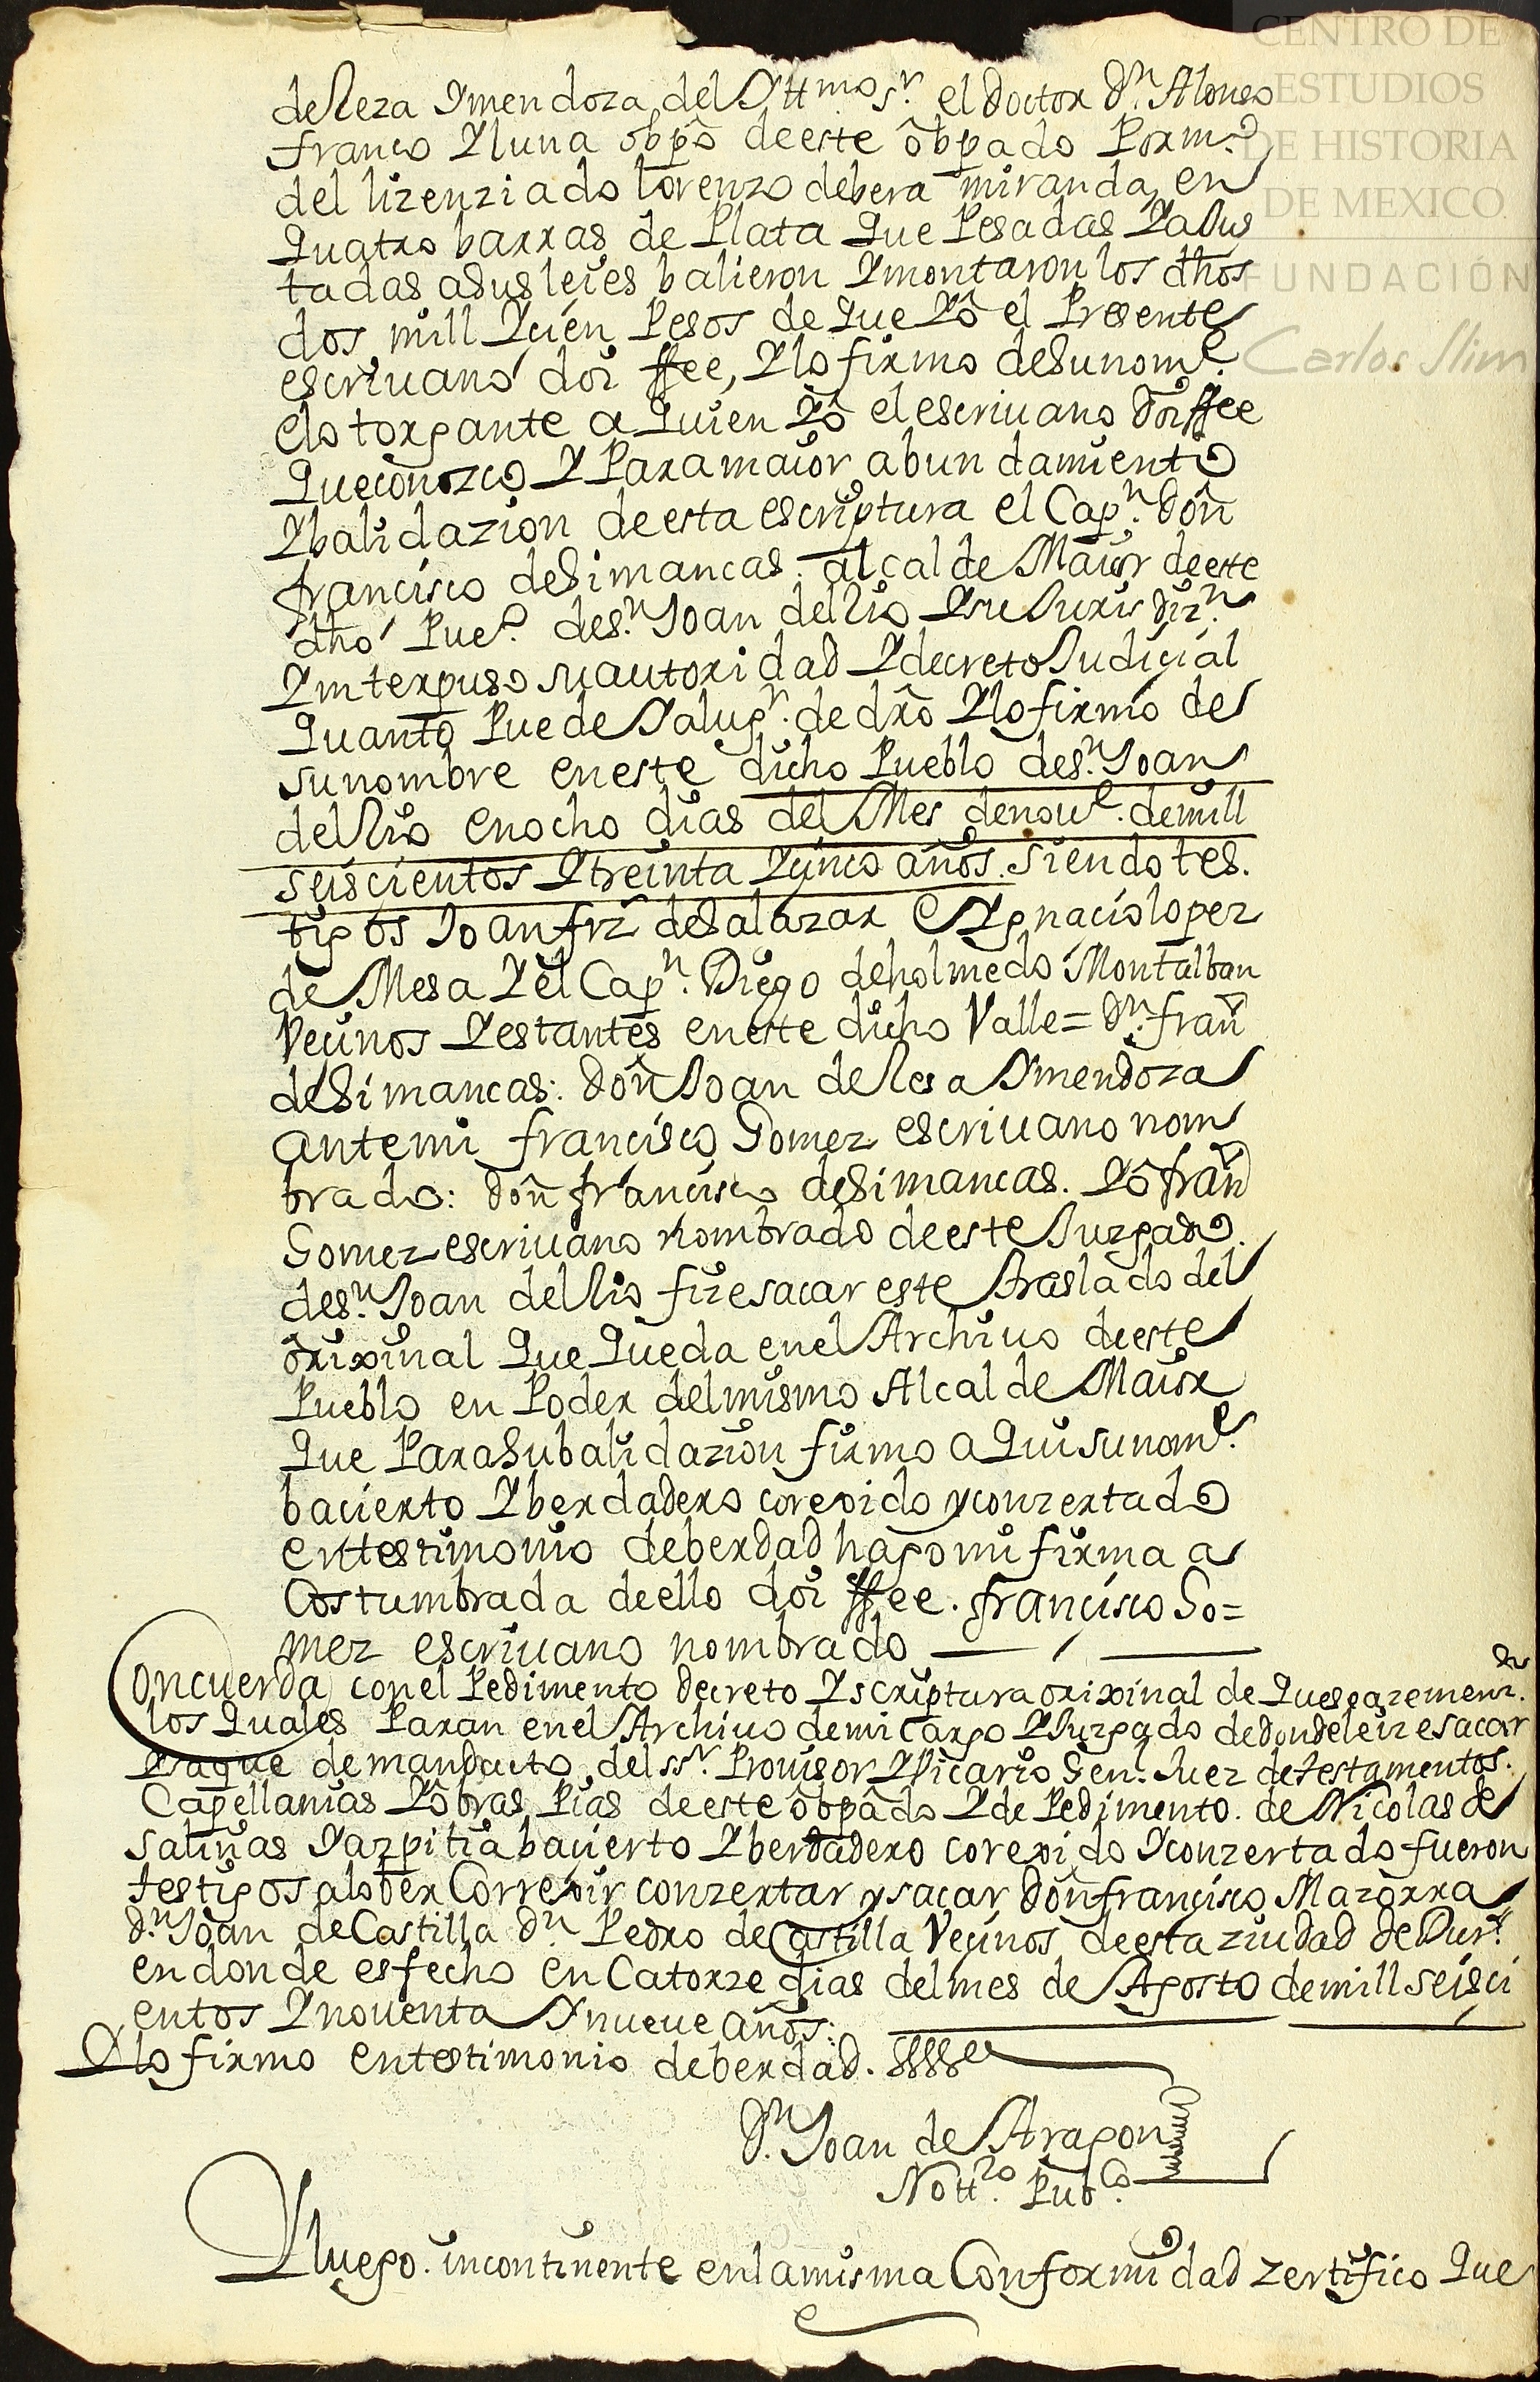 CENTRO DE
ESTUDIOS
DE HISTORIA
DE MEXICO
FUNDACIÓN
Carlos Slim
deReza Ymendoza del Yttmo sr. el Doctor Dn. Alonso
franco Y luna obpo deeste obpado Por mo.
del lizenziado lorenzo debera miranda, en
quatro barras de Plata que Pesadas YaJus
tadas asus leies balieron Ymontaron los dhos
dos mill Ycien Pesos de que Yo el Presente
escriuano doi ffee, Ylo firmo desunome.
elotorgante a quien Yo el escriuano doi ffee
queconozco Y Para maior abundamiento
Ybalidazion deesta escriptura el Capn. Don
francisco deSimancas alcalde Maior deeste
dho Pueo. desn. Joan del Rio Ysu Jurisdizn.
Ynterpuso suautoridad Ydecreto Judicial
quanto Puede Yalugr. de dro Ylofirmo de
sunombre eneste dicho Pueblo desn. Joan
del Rio enocho dias del Mes denoue. demill
seiscientos Ytreinta Ycinco años. siendo tes.
tigos Joan frz deSalazar E Ygnacio lopez
de Mesa Y el Capn. Diego deholmedo Montalban
Vecinos Yestantes eneste dicho Valle = Dn. fran
deSimancas: Don Joan deResa Ymendoza
antemi francisco Gomez escriuano nom
brado: Don francisco deSimancas. Yo fran
Gomez escriuano nombrado deeste Juzgado.
desn. Joan del Rio fize sacar este traslado del
orixinal que queda enel Archiuo deeste
Pueblo en Poder delmismo Alcalde Maior
que Para Subalidazion firmo a qui sunome.
bacierto Yberdadero corexido yconzertado
entestimonio deberdad hago mi firma a
Costumbrada deello doi ffee. francisco Go=
mez escriuano nombrado
Concuerda conel Pedimento decreto Yscriptura orixinal de quesehazemenz. on
los quales Paran enel Archiuo demi cargo YJuzgado dedondeleize sacar
Ysaque de mandacto del ssr. Prouisor YVicario Genl. Juez detestamentos.
Capellanias Yobras Pias deeste obpado Yde Pedimento. de Nicolas de
salinas Yazpitia bacierto Yberdadero corexido Yconzertado fueron
testigos alober Correxir conzertar ysacar Donfrancisco Mazorra
Dn. Joan de Castilla Dn. Pedro de Castilla Vecinos deesta ziudad de Durgo.
endonde esfecho en Catorze dias delmes de Agosto demill seisci
entos Ynouenta Ynueue años:
Ylo firmo entestimonio deberdad.
Dn. Joan de Aragon
Nottro. Pubco.
Yluego. incontinente enlamisma Conformidad zertifico que